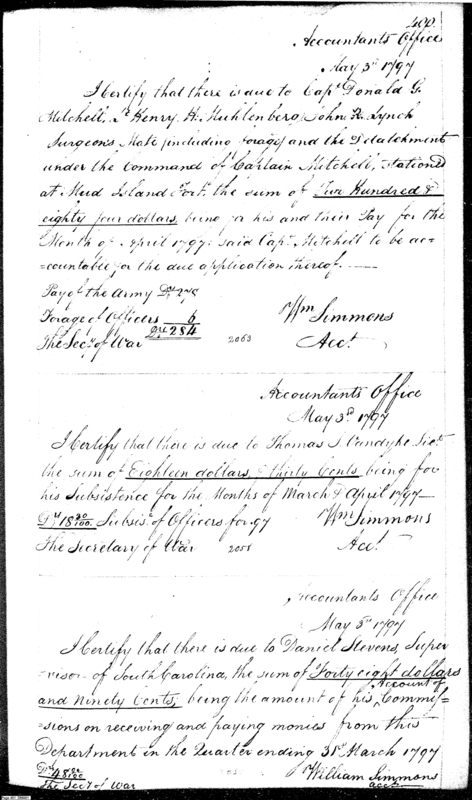 400
Accountants Office
May 3d 1797
I Certify that there is due to Capt Donald G.
Mitchell, Lt Henry, H. Muhlenberg, John R. Lynch
Surgeons Mate (including forage) and the Detatchment
under the Command of Captain Mitchell, Stationed
at Mud Island Fort, the sum of Two Hundred &
eighty four dollars, being for his and their Pay for the
Month of April 1797. Said Capt Mitchell to be ac=
=countable for the due application thereof.
Pay of the Army Drs 278
Forage of Officers 6
Drs 284
Wm Simmons
The Secy of War 2063 Acct
Accountants Office
May 3d 1797
I Certify that there is due to Thomas J. Vandyke
the sum of Eighteen dollars, & thirty Cents, being for
his Subsistence for the Months of March & April 1797
Drs 18 30/100. Subsis. of Officers for 97 Wm Simmons
The Secretary of War Acct
Accountants Office
May 3d 1797
I Certify that there is due to Daniel Stevens, Super
=visor of South Carolina, the sum of Forty eight dollars
and Ninety Cents, being the amount of his Account of Commis=
=sions on receiving and paying monies from this
Department in the Quarter ending 31st March 1797
Drs 48 90/100 William Simmons
The Sect of War acct